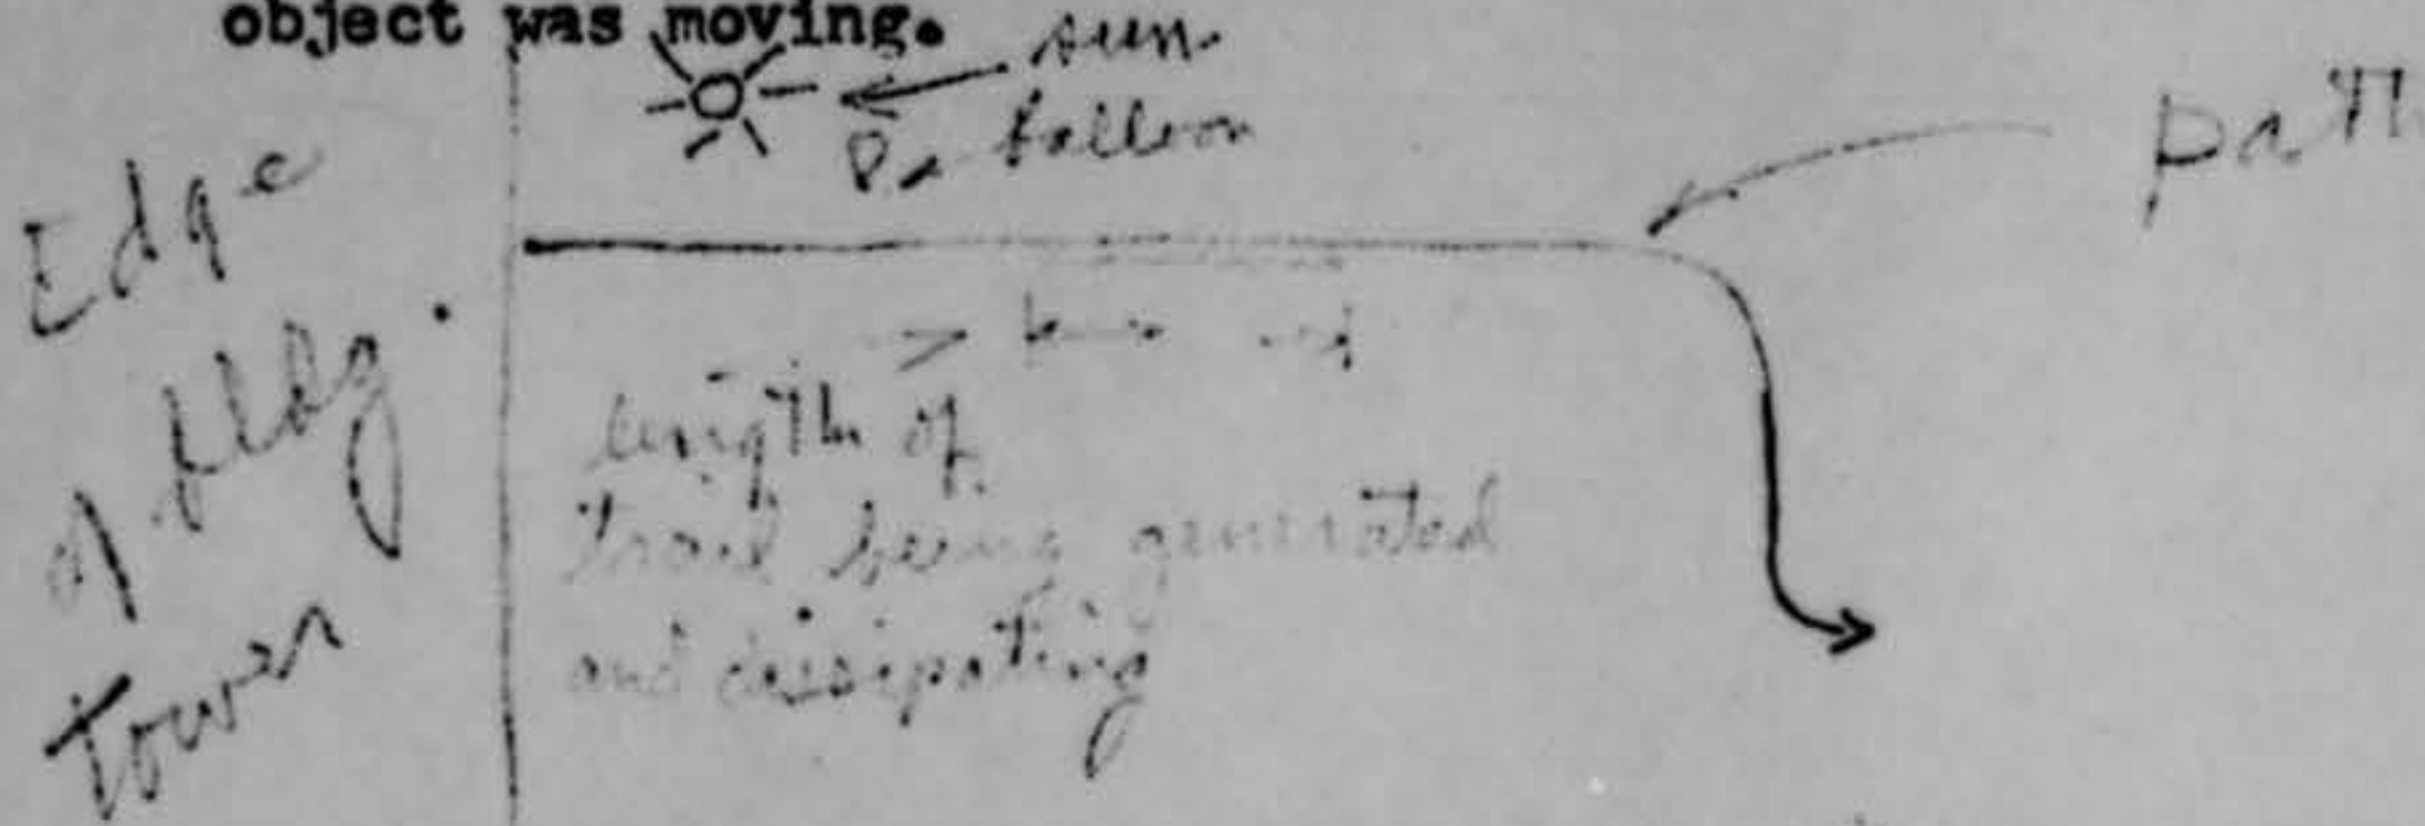 object was moving.
sun
balloon
path
Edge
of Bldg.
Tower
length of
trail being generated
and dissipating